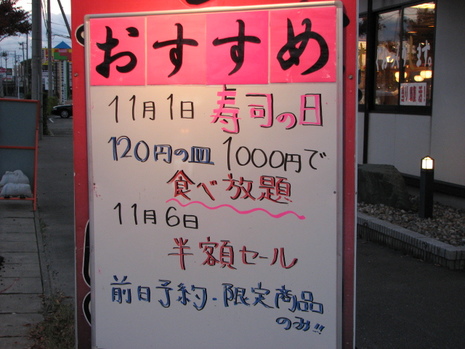 おすすめ
11月1日 寿司の日
120円の皿 1000円で
食べ放題
11月6日
半額セール
前日予約・限定商品
のみ!!